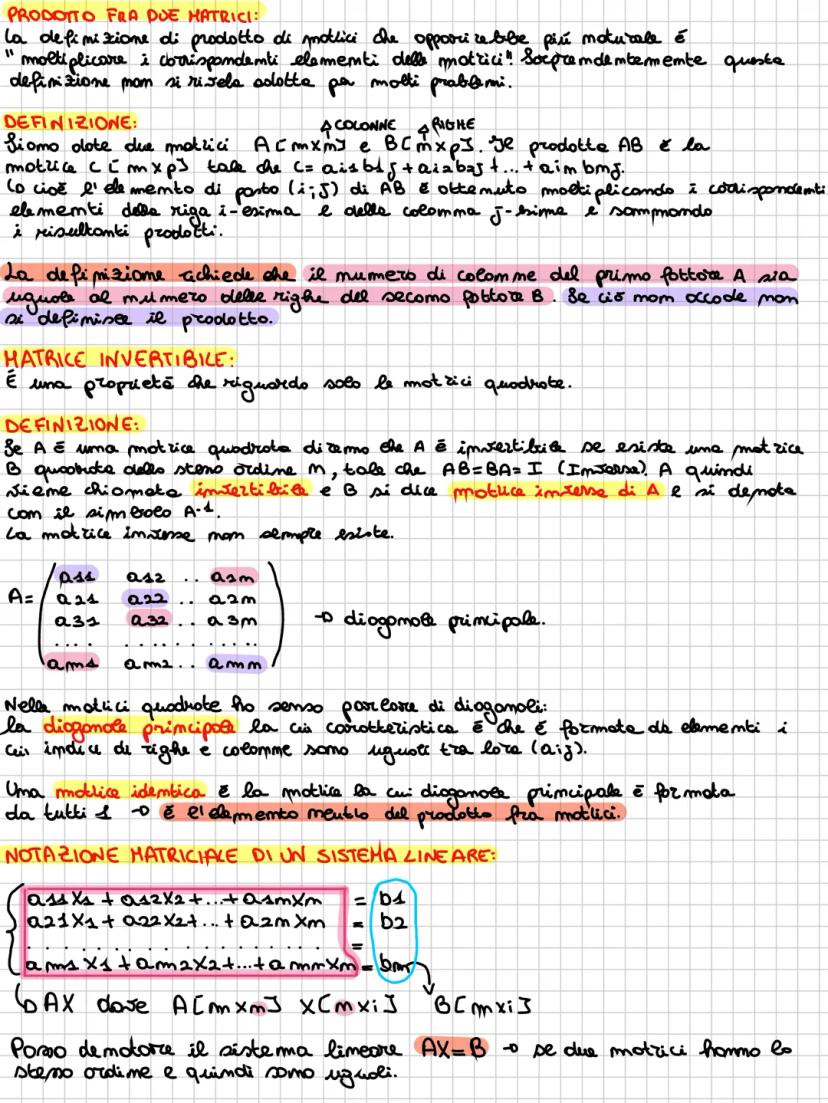 PRODOTTO FRA DUE MATRICI:
La definizione di prodotto di matrici che apparirebbe più naturale è
"moltiplicare i corrispondenti elementi delle matrici". Sorprendentemente questa
definizione non si rivela adatta per molti problemi.
DEFINIZIONE:
COLONNE RIGHE
Siano date due matrici A[mxn] e B[nxp]. Il prodotto AB è la
matrice C[mxp] tale che C= ai1b1j+ai2b2j+...+ainbnj.
Cioè l'elemento di posto (i;j) di AB è ottenuto moltiplicando i corrispondenti
elementi della riga i-esima e della colonna j-esima e sommando
i risultanti prodotti.
La definizione richiede che il numero di colonne del primo fattore A sia
uguale al numero delle righe del secono fattore B. Se ciò non accade non
si definisce il prodotto.
MATRICE INVERTIBILE:
È una proprietà che riguarda solo le matrici quadrate.
DEFINIZIONE:
Se A è una matrice quadrata diremo che A è invertibile se esiste una matrice
B quadrata dello stesso ordine n, tale che AB=BA=I (Inversa). A quindi
viene chiamata invertibile e B si dice matrice inversa di A e si denota
con il simbolo A-1.
La matrice inversa non sempre esiste.
a11 a12 .. a1n
A= a21 a22 .. a2n
a31 a32 .. a3n → diagonale principale.
.... .... ....
an1 an2 .. ann
Nelle matrici quadrate ha senso parlare di diagonali:
la diagonale principale la cui caratteristica è che è formata da elementi i
cui indici di righe e colonne sono uguali tra loro (aij).
Una matrice identica è la matrice la cui diagonale principale è formata
da tutti 1 → è l'elemento neutro del prodotto fra matrici.
NOTAZIONE MATRICIALE DI UN SISTEMA LINEARE:
a11X1 + a12X2+...+a1nXn = b1
a21X1+ a22X2+...+a2nXn = b2
. . . . . . . . . . . . . . . . =
am1X1+am2X2+...+amnXn = bm
↳ AX dove A[mxn] X[nxi] B[mxi]
Posso denotare il sistema lineare AX=B → se due matrici hanno lo
stesso ordine e quindi sono uguali.